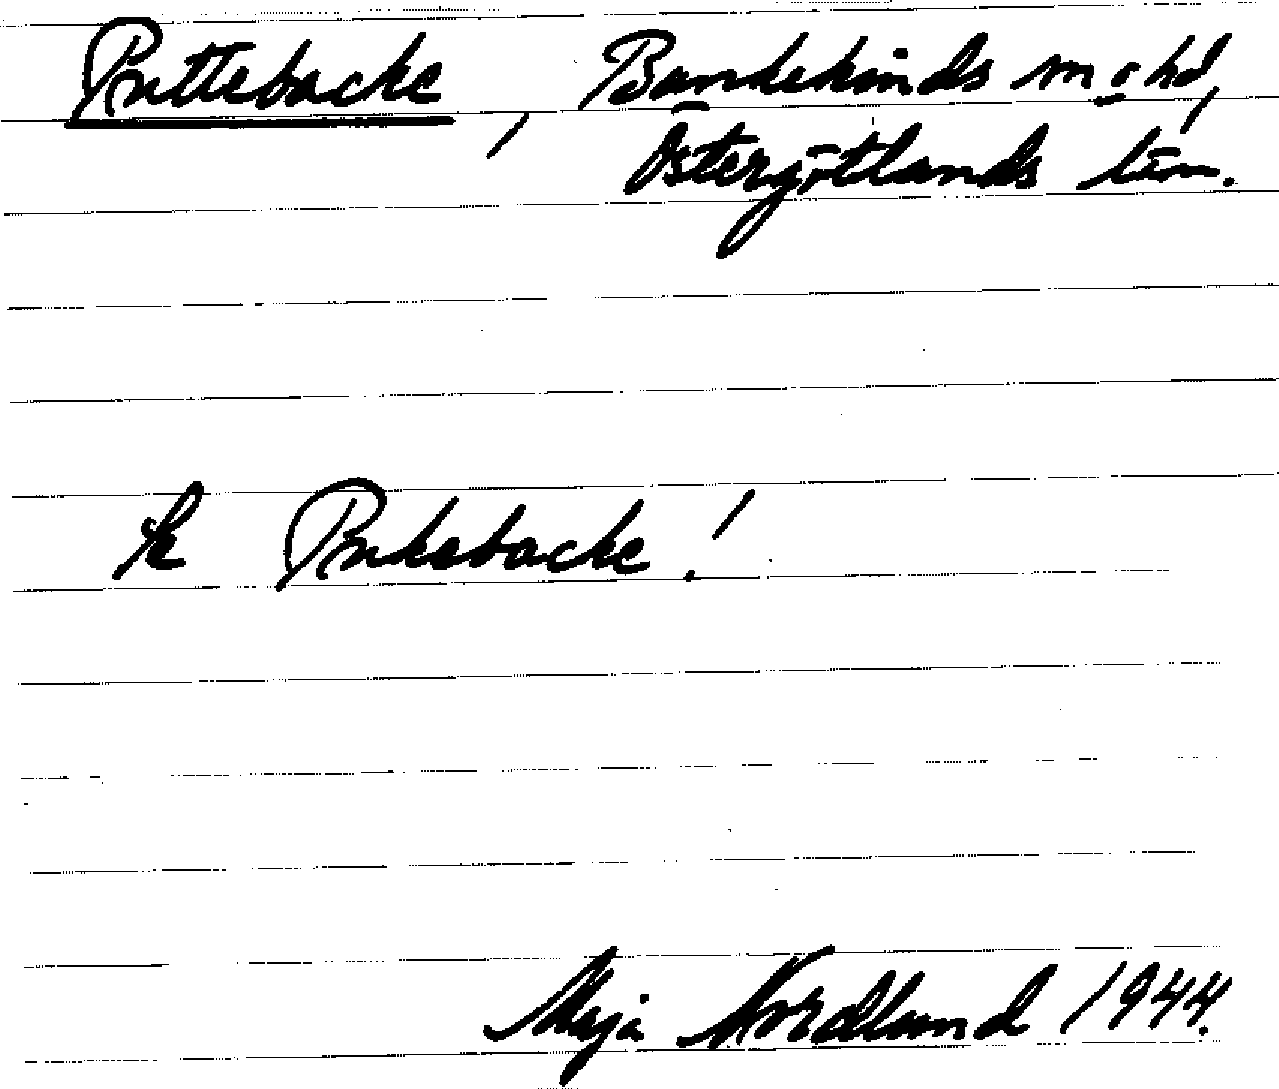 Puttebacke, Bandekinds m o hd,
Östergötlands län.
Se Pukebacke!
Maja Nordlund 1944.